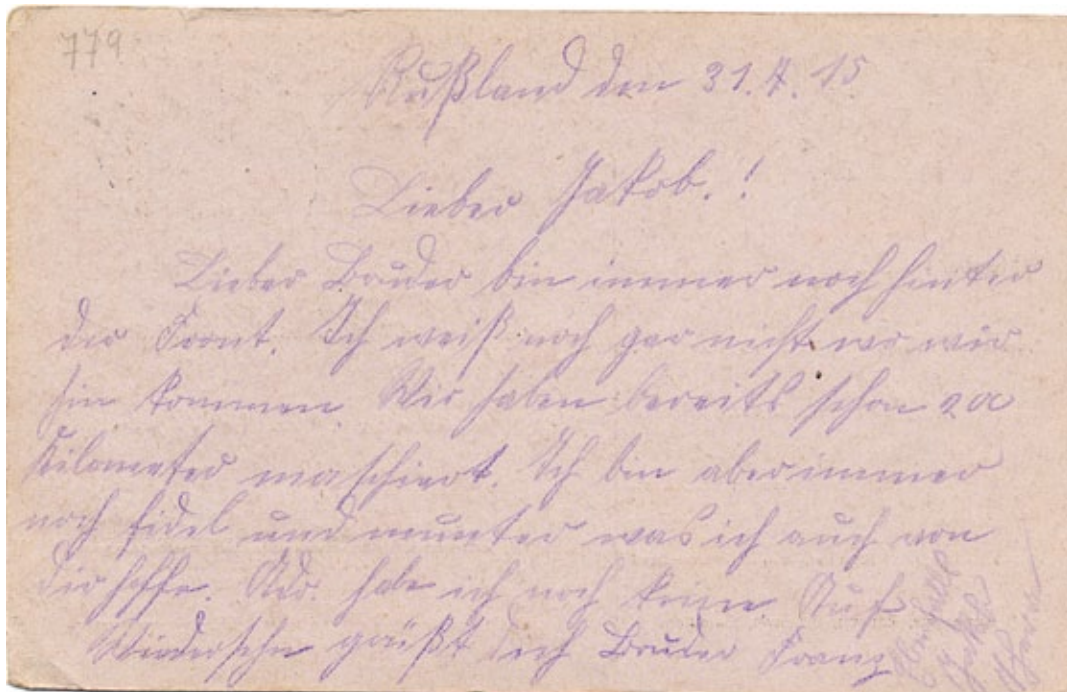 779
Rußland den 31.8.15
Lieber Jakob.!
Lieber Bruder bin immer noch hinter
der Front. Ich weiß noch gar nicht wo wir
hin kommen Wir haben bereits schon
Kilometer maschiert. Ich bin aber immer
noch fidel und munter was ich auch von
dir hoffe. Adr. habe ich noch keine. Auf
Wiedersehn grüßt dich Bruder Franz
Ebenfalls